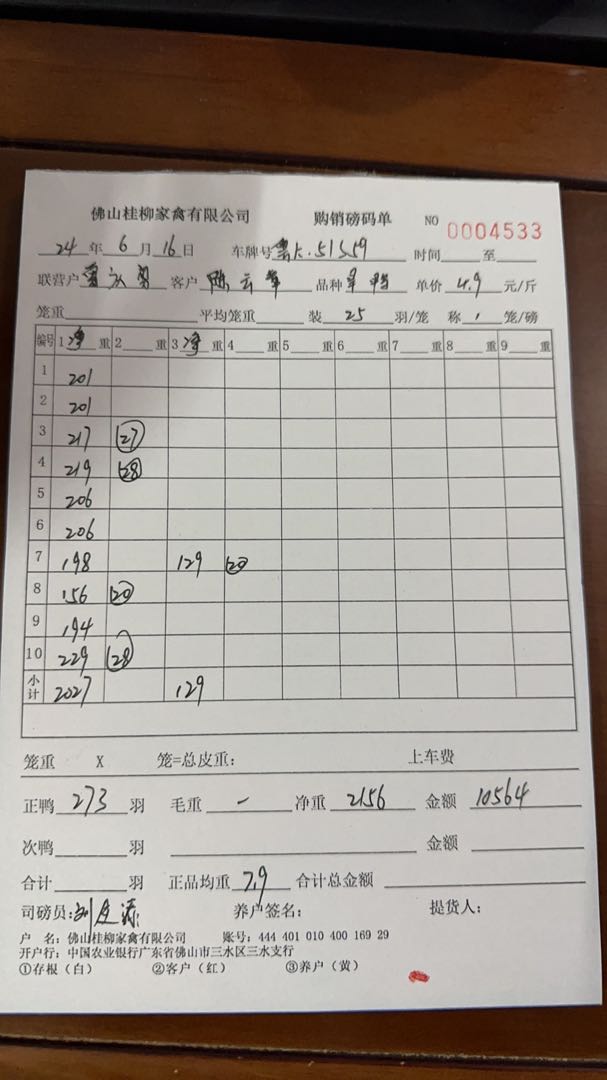 佛山桂柳家禽有限公司 购销磅码单 NO 0004533
24 年 6 月 16 日 车牌号 K.51S59 时间 至
联营户 客户 陈云 品种 单价 4.9 元/斤
笼重 平均笼重 装 25 羽/笼 称 笼/磅
编号 1 净 重 2 重 3 净 重 4 重 5 重 6 重 7 重 8 重 9 重
1 201
2 201
3 217 27
4 219 28
5 206
6 206
7 198 129 20
8 156 20
9 194
10 229 28
小计 2027 129
笼重 X 笼=总皮重： 上车费
正鸭 273 羽 毛重 - 净重 2156 金额 10564
次鸭 羽 金额
合计 羽 正品均重 7.9 合计总金额
司磅员: 刘 源 养户签名： 提货人：
户 名：佛山桂柳家禽有限公司 账号：444 401 010 400 169 29
开户行：中国农业银行广东省佛山市三水区三水支行
①存根（白） ②客户（红） ③养户（黄）